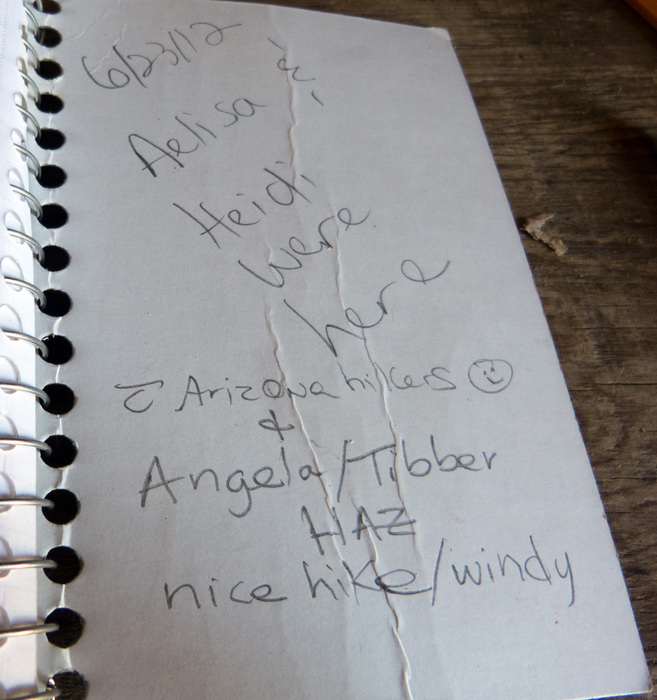 6/23/12
Aelisa &
Heidi
were
here
Arizona hikers
&
Angela/Tibber
HAZ
nice hike/windy